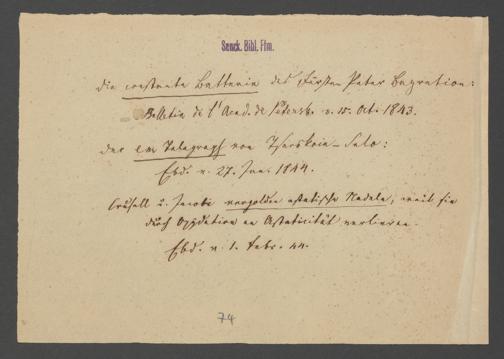 Senck. Bibl. Ffm.
die constante Batterie des Fürsten Peter Bagration:
Bulletin de l'Acad. de Petersb. v. 15. Oct. 1843.
der em Telegraph von Tsarskoie-Selo:
Ebd. v. 27. Jan. 1844.
Crusell u. Jacobi vergolden astatische Nadeln, weil sie
durch Oxydation an Astaticität verlieren.
Ebd. v. 1. Febr. 44.
74